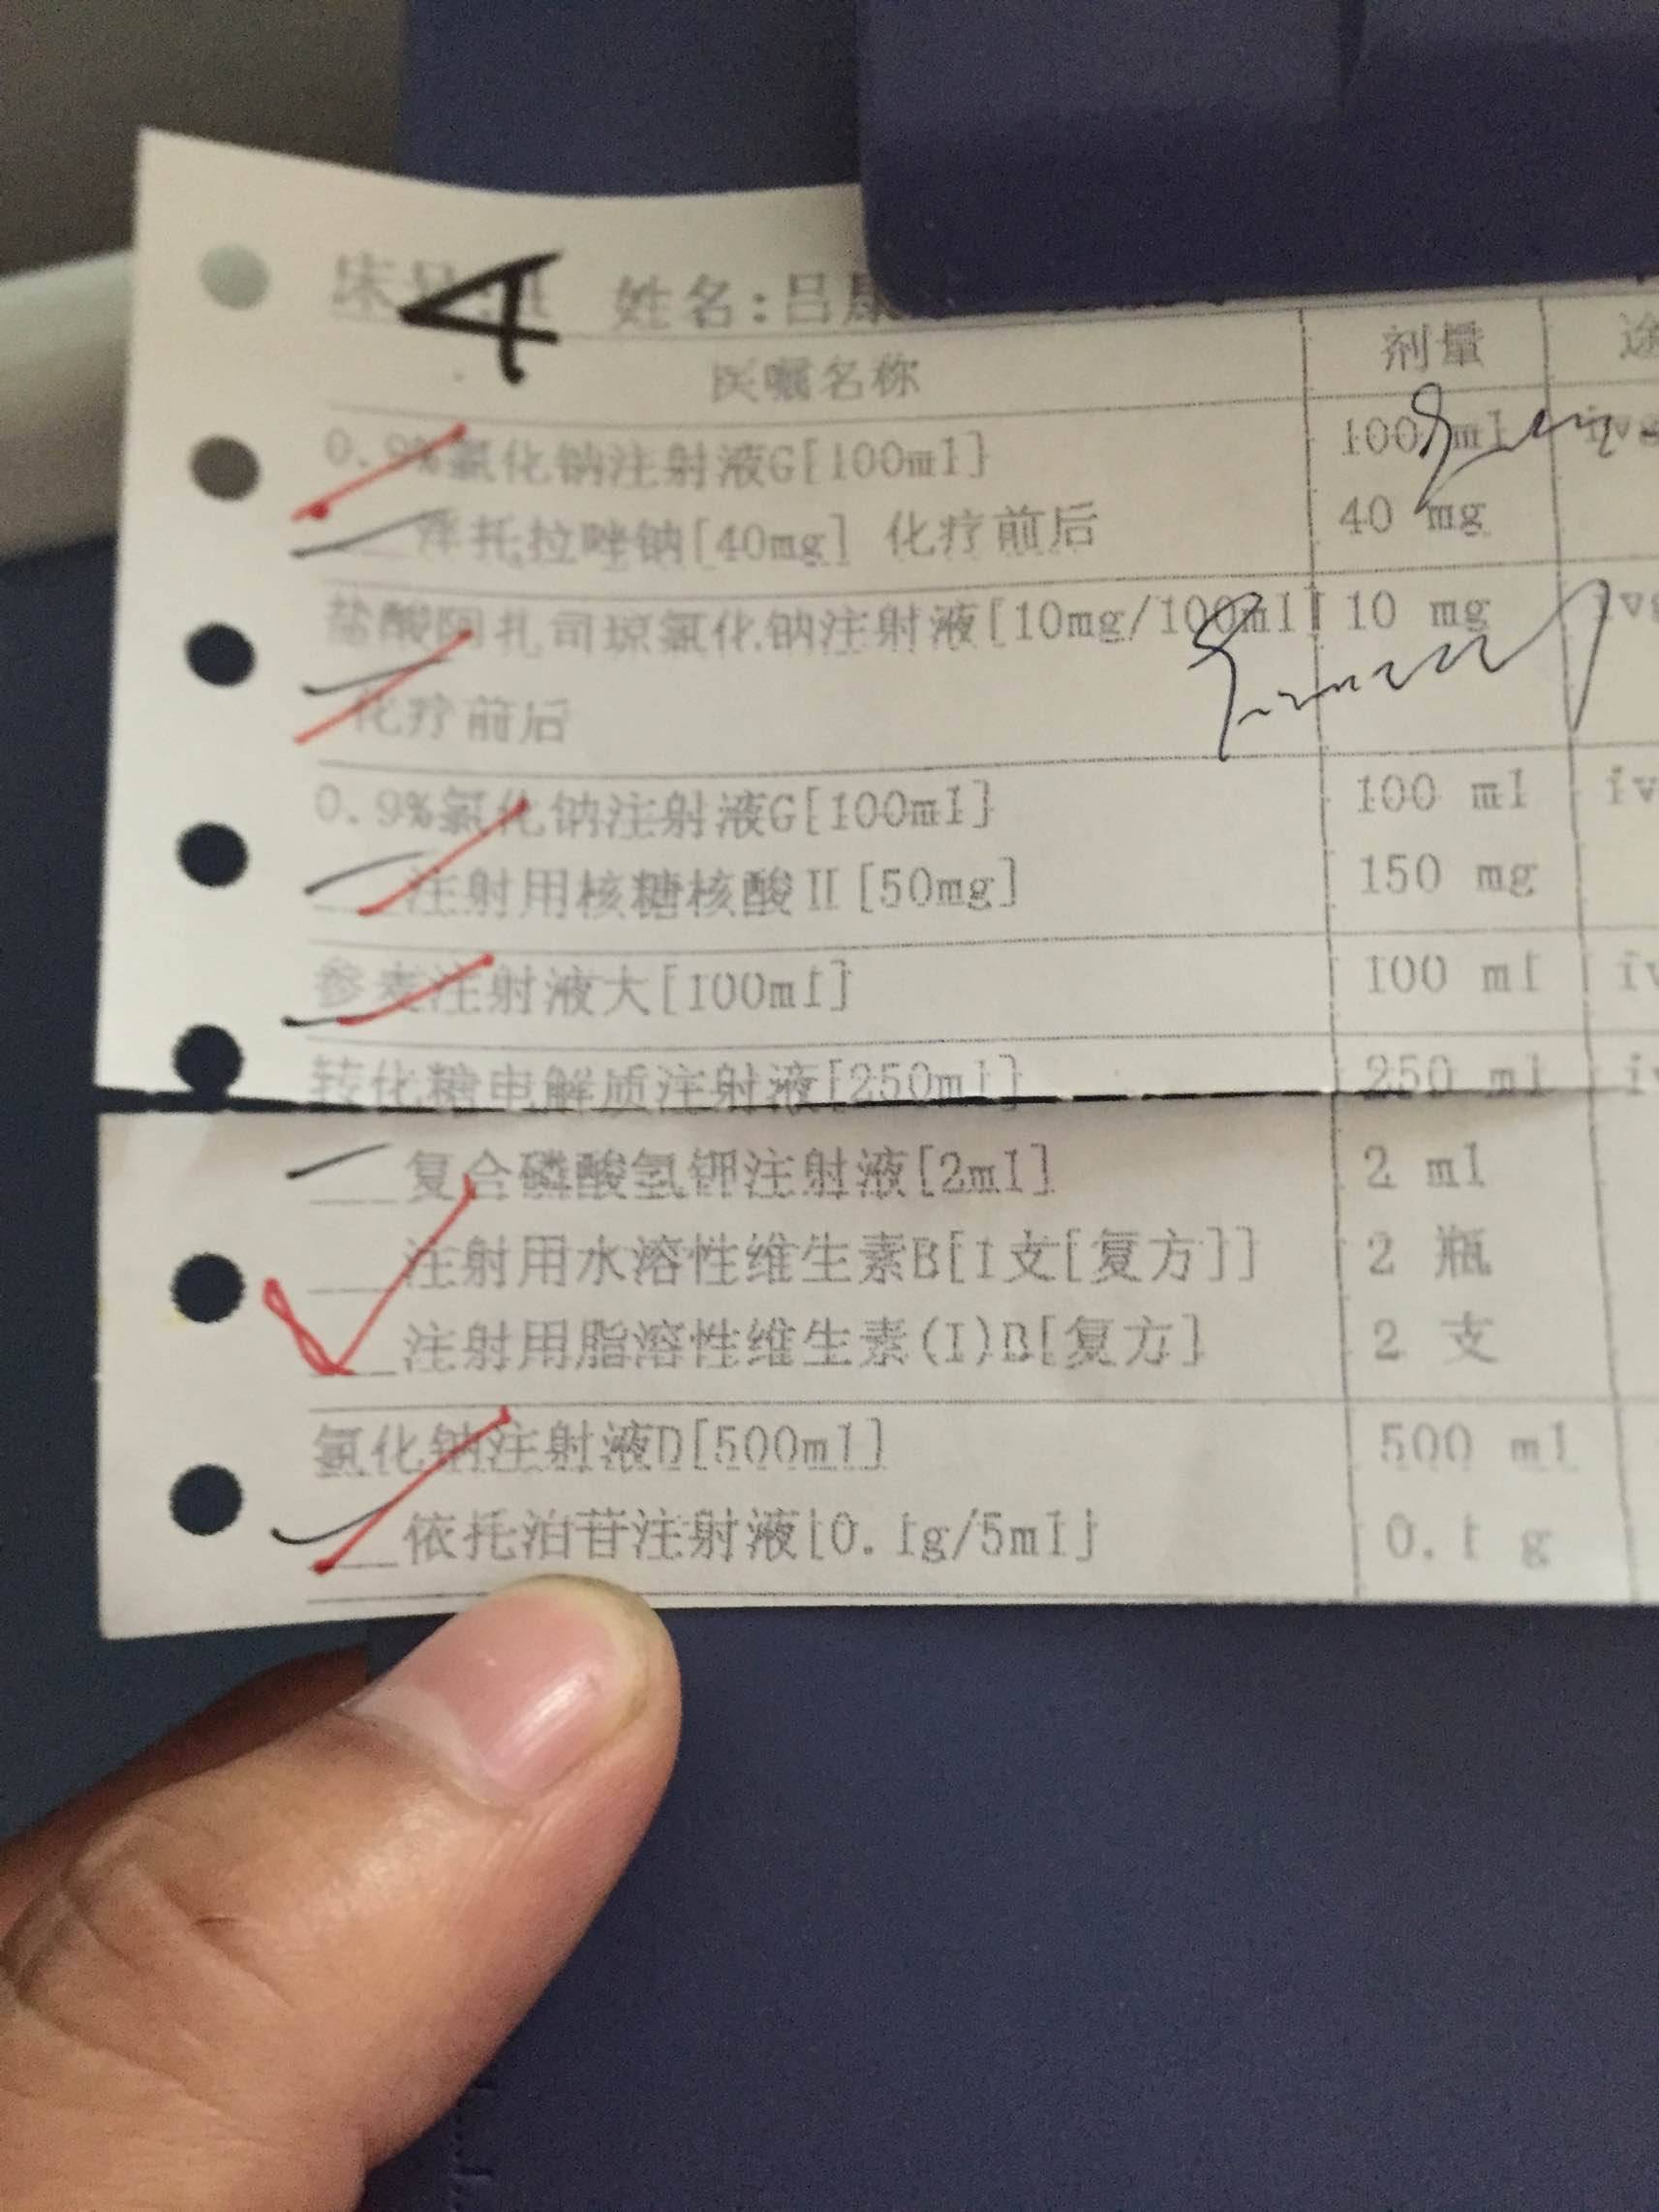 床号 4 姓名:吕康
医嘱名称 剂量 途
0.9%氯化钠注射液G[100ml] 100 ml ivg
泮托拉唑钠[40mg] 化疗前后 40 mg
盐酸阿扎司琼氯化钠注射液[10mg/100ml] 10 mg ivg
化疗前后
0.9%氯化钠注射液G[100ml] 100 ml iv
注射用核糖核酸II[50mg] 150 mg
参麦注射液大[100ml] 100 ml iv
转化糖电解质注射液[250ml] 250 ml iv
复合磷酸氢钾注射液[2ml] 2 ml
注射用水溶性维生素B[1支[复方]] 2 瓶
注射用脂溶性维生素(I)B[复方] 2 支
氯化钠注射液D[500ml] 500 ml
依托泊苷注射液[0.1g/5ml] 0.1 g